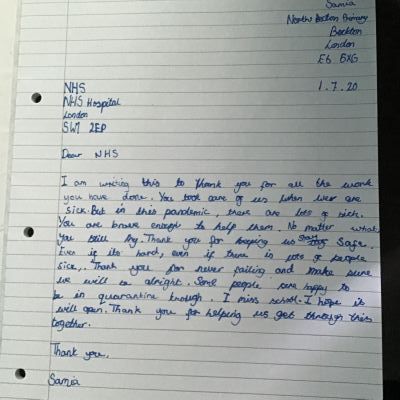 Samia
North Beckton Primary
Beckton
London
E6 5XG
1.7.20
NHS
NHS Hospital
London
SW1 2EP
Dear NHS
I am writing this to thank you for all the work
you have done. You took care of us when wer are
sick. But in this pandemic, there are lots of sick.
You are brave enough to help them. No matter what
you still try. Thank you for keeping us stay safe.
Even if its hard, even if there is lots of people
sick,. Thank you for never failing and make sure
we will be alright. Some people are happy to
be in quarantine though. I miss school. I hope it
will open. Thank you for helping us get through this
together.
Thank you,
Samia